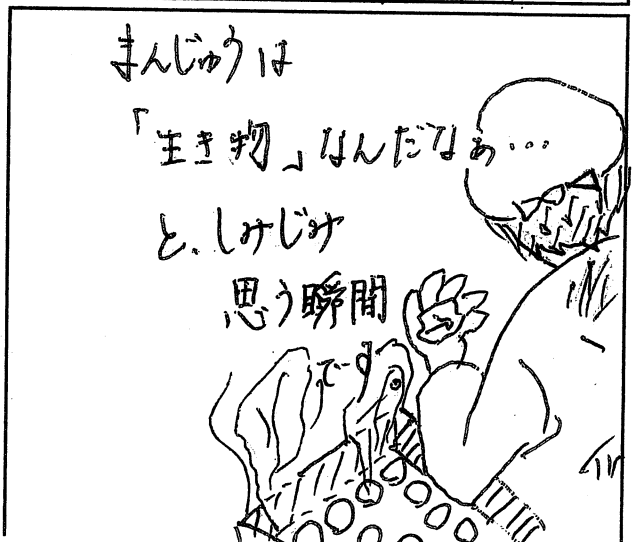 まんじゅうは
「生き物」なんだなぁ…
と、しみじみ
思う瞬間
です